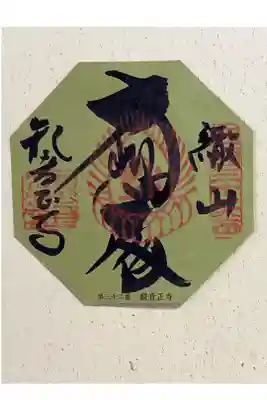 繖山
大悲殿
観音正寺
第三十二番 観音正寺